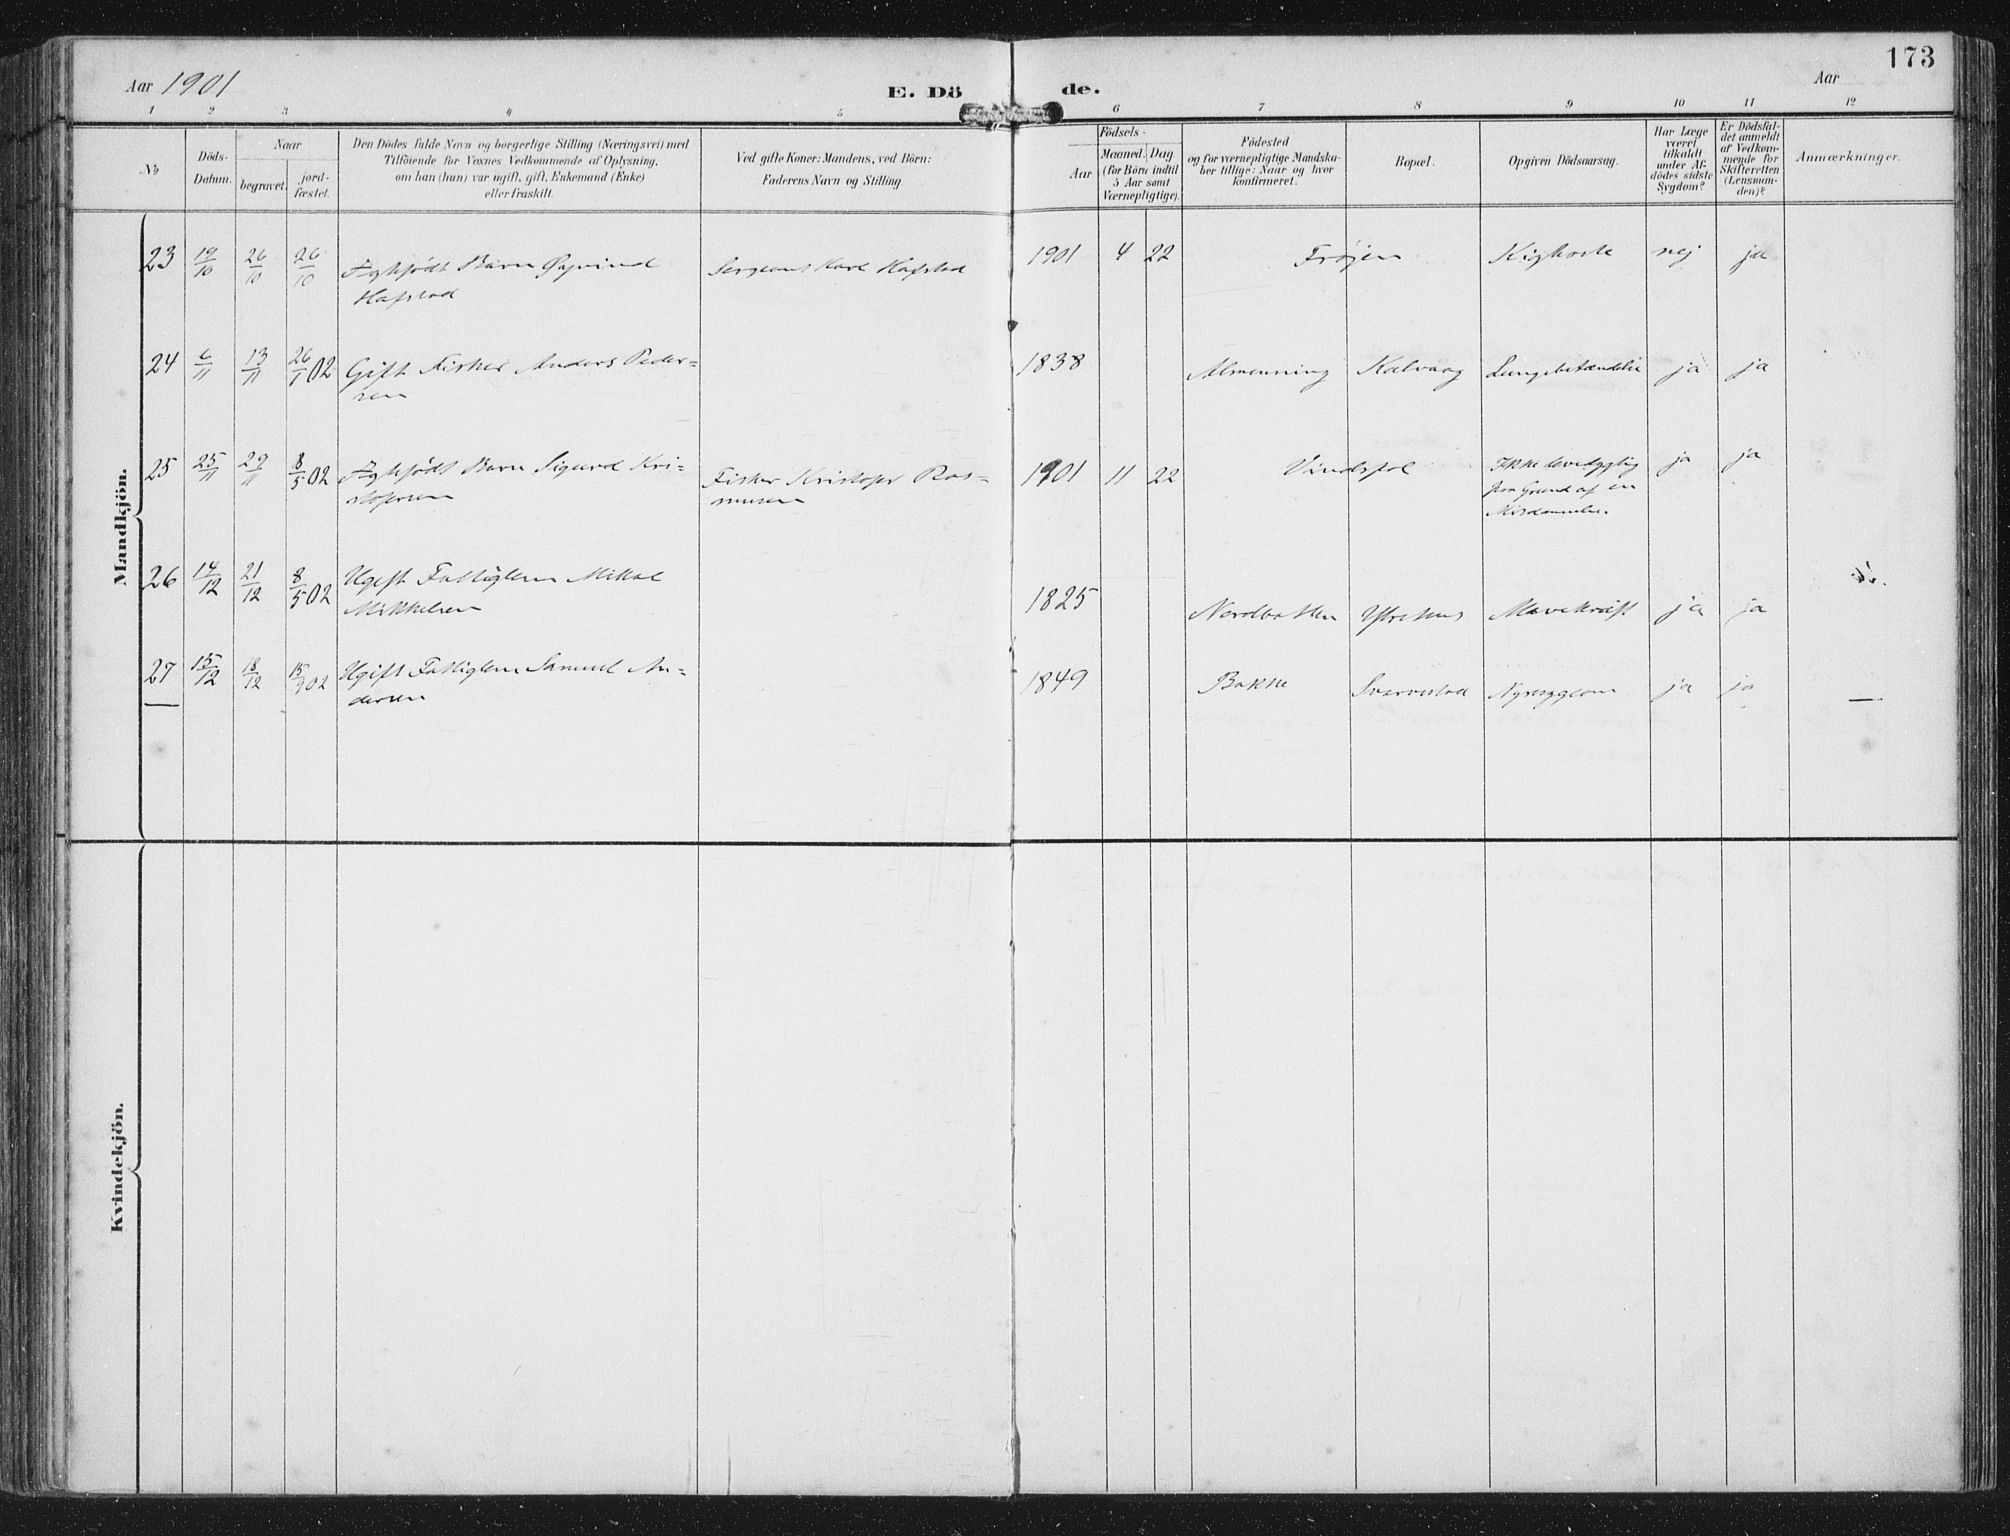 173
Aar 1901
E. Dö de.
Aar
1 2 3 4 5 6 7 8 9 10 11 12
No
Döds-
Datum.
Naar
begravet.
jord-
fæstet.
Den Dödes fulde Navn og borgerlige Stilling (Næringsvei) med
Tilföiende for Voxnes Vedkommende af Oplysning,
om han (hun) var ugift, gift, Enkemand (Enke)
eller fraskilt.
Ved gifte Koner: Mandens, ved Börn:
Faderens Navn og Stilling.
Födsels-
Aar
Maaned. Dag.
(for Börn indtil
5 Aar samt
Værnepligtige).
Födested
og for værnepligtige Mandska-
ber tillige: Naar og hvor
konfirmeret.
Bopæl.
Opgiven Dödsaarsag.
Har Læge
været
tilkaldt
under Af-
dödes sidste
Sygdom?
Er Dödsfal-
det anmeldt
af Vedkom-
mende for
Skifteretten
(Lensman-
den)?
Anmærkninger.
Mandkjön.
23 19/10 26/10 26/10 Ægtefødt Barn Øyvind Sergeant Karl Hafstad 1901 4 22 Frøjen Kighoste nej ja
Hafstad
24 6/11 13/11 26/1 02 Gift Fisker Anders Peder= 1838 Almenning Kalvaag Lungebetændelse ja ja
sen
25 25/11 29/11 8/5 02 Ægtefødt Barn Sigurd Kri= Fisker Kristofer Ras= 1901 11 22 Vindspol Ikke levedygtig ja ja
stofersen musen paa Grund af en
Misdannelse.
26 14/12 21/12 8/5 02 Ugift Fattiglem Mikal 1825 Nordbotten Ytrehus Mavekræft ja ja
Mikkelsen
27 15/12 18/12 15/9 02 Ugift Fattiglem Samuel An= 1849 Bakke Svarvestad Nyresygdom ja ja —
dersen
Kvindekjön.